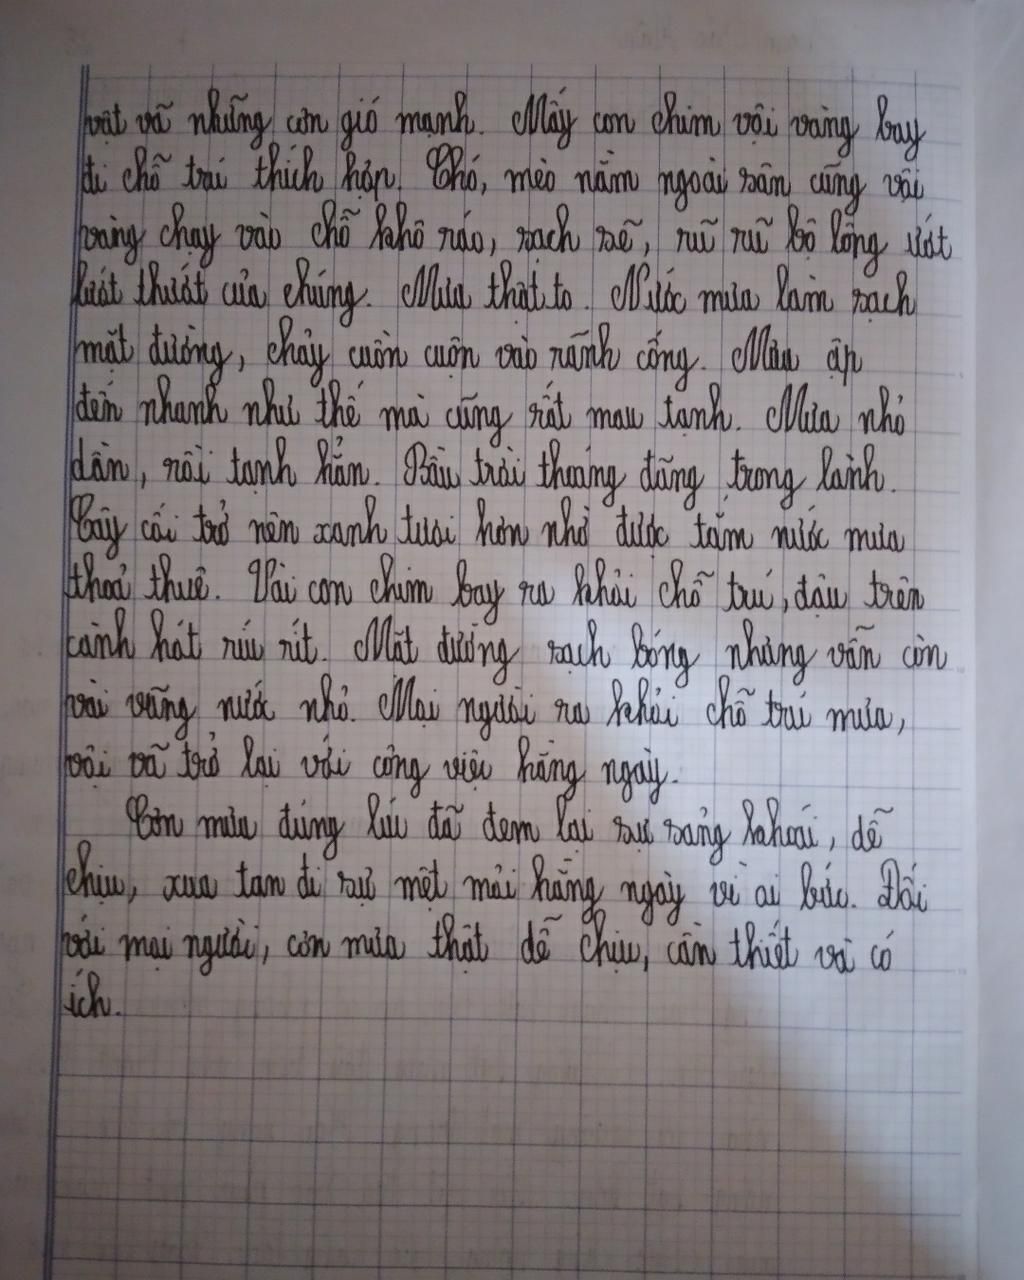 vật vã những cơn gió mạnh. Mấy con chim vội vàng bay
đi chỗ trú thích hợp. Chó, mèo nằm ngoài sân cũng vội
vàng chạy vào chỗ khô ráo, sạch sẽ, rũ rũ bộ lông ướt
lướt thướt của chúng. Mưa thật to. Nước mưa làm sạch
mặt đường, chảy cuồn cuộn vào rãnh cống. Mưa ập
đến nhanh như thế mà cũng rất mau tạnh. Mưa nhỏ
dần, rồi tạnh hẳn. Bầu trời thoáng đãng, trong lành.
Cây cối trở nên xanh tươi hơn nhờ được tắm nước mưa
thoả thuê. Vài con chim bay ra khỏi chỗ trú, đậu trên
cành hót ríu rít. Mặt đường sạch bóng nhưng vẫn còn
vài vũng nước nhỏ. Mọi người ra khỏi chỗ trú mưa,
vội vã trở lại với công việc hằng ngày.
Cơn mưa đúng lúc đã đem lại sự sảng khoái, dễ
chịu, xua tan đi sự mệt mỏi hằng ngày vì oi bức. Đối
với mọi người, cơn mưa thật dễ chịu, cần thiết và có
ích.